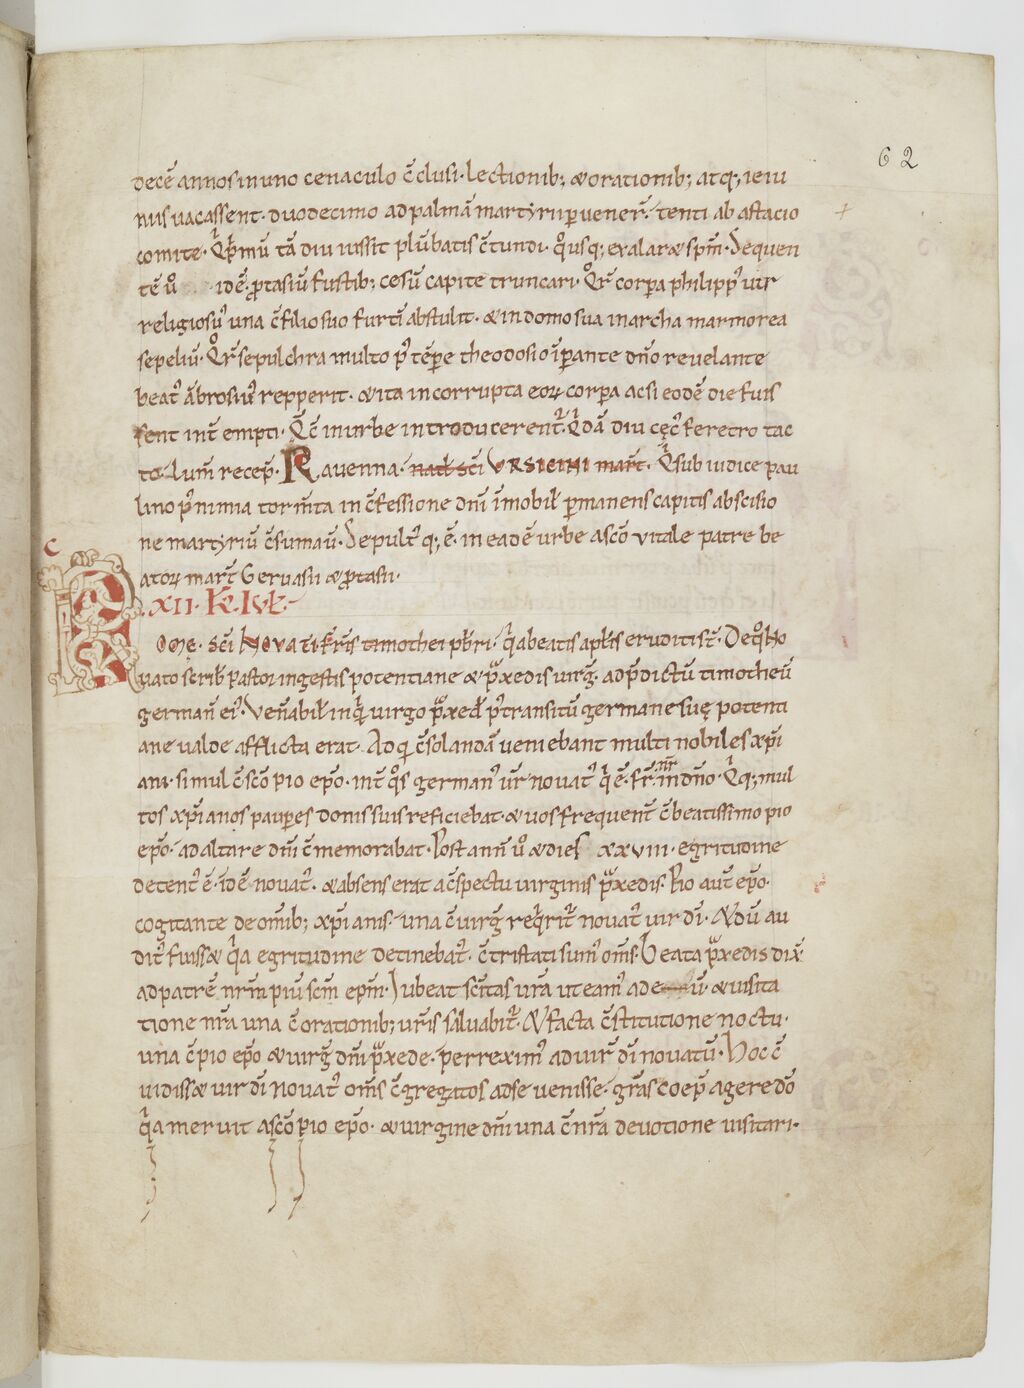 62
decē annos in uno cenaculo c̄clusi· lectionib; &orationib; atq; ieiu
niis uacassent· duodecimo ad palmā martyrii ꝑuener̄· tenti ab astacio
comite· Qͥ pͥmū tā diu iussit plūbatis c̄tundi· qͦusq; exalar& sp̄m· Sequen
tē uͦ idē ꝓtasiū fustib; cesū capite truncari· Qͦꝝ corꝑa philippꝰ uir
religiosꝰ una c̄ filio suo furtī abstulit· &in domo sua in archa marmorea
sepeliū· Qͦꝝ sepulchra multo pꝰ tēꝑe theodosio īꝑante dn̄o reuelante
beatꝰ ābrosiuꝰ repperit· &ita incorrupta eoꝝ corꝑa acsi eodē die fuis
sent int̄empti· Qͥ c̄ in urbe introducerent̄· Qͥdā diu cęcꝰ feretro tac
to lum̄ recep̄· Rauenna· nat̄ sc̄i URSICINI mart̄· Qͥ sub iudice pau
lino pꝰ nimia torm̄ta in c̄fessione dn̄i īmobil̄ ꝑmanens capitis abscisio
ne martyriū c̄sumauͭ· Sepultꝰ q; ē· in eadē urbe a sc̄o uitale patre be
atoꝝ mart̄ Geruasii & ꝓtasii·
C
·XII· Kl̄· Iul̄·
R
OME· sc̄i Nouati fr̄is timothei pb̄ri· qͥ a beatis apl̄is eruditi st̄· De qͦ No
uato scrib̄ pastor in gestis potentiane & pͣxedis uirg̅· ad p̄dictū timotheū
german̄ eiꝰ· Ven̄abil̄ inqͥ uirgo pͣxed̄ pꝰ transitū germane suę potenti
ane ualde afflicta erat· Ad qͣ c̄solandā ueniebant multi nobiles xp̄i
ani· simul c̄ sc̄o pio ep̄o· int̄ qͦs germanꝰ ur̄ nouatꝰ qͥ ē· fr̄ nr̄ in dn̄o· Qͥ q; mul
tos xp̄ianos pauꝑes donis suis reficiebat· &uos frequent̄ c̄ beatissimo pio
ep̄o· ad altare dn̄i c̄memorabat· Post ann̄ uͦ &dies xxviii· egritudine
detentꝰ ē· idē nouatꝰ· &absens erat a c̄spectu uirginis pͣxedis· Pio aut̄ ep̄o·
cogitante de om̄ib; xp̄ianis· una c̄ uirg̅ reqͥrit̄ nouatꝰ uir dī· &dū au
dit̄ fuiss& qͥa egritudine detinebat̄· c̄tristati sumꝰ om̄s· Beata pͣxedis dix̄
ad patrē nr̄m piū sc̄m ep̄m· Iubeat sc̄itas ur̄a ut eamꝰ ad eū· &uisita
tione nr̄a una c̄ orationib; ur̄is saluabit̄· &facta c̄stitutione noctu·
una c̄ pio ep̄o &uirg̅ dn̄i pͣxede· perreximꝰ ad uir̄ dī nouatū· Hoc c̄
uidiss& uir dī nouatꝰ om̄s c̄gregatos ad se uenisse· gr̄as coep̄ agere dō
qͥa meruit a sc̄o pio ep̄o· &uirgine dn̄i una c̄ nr̄a deuotione uisitari·